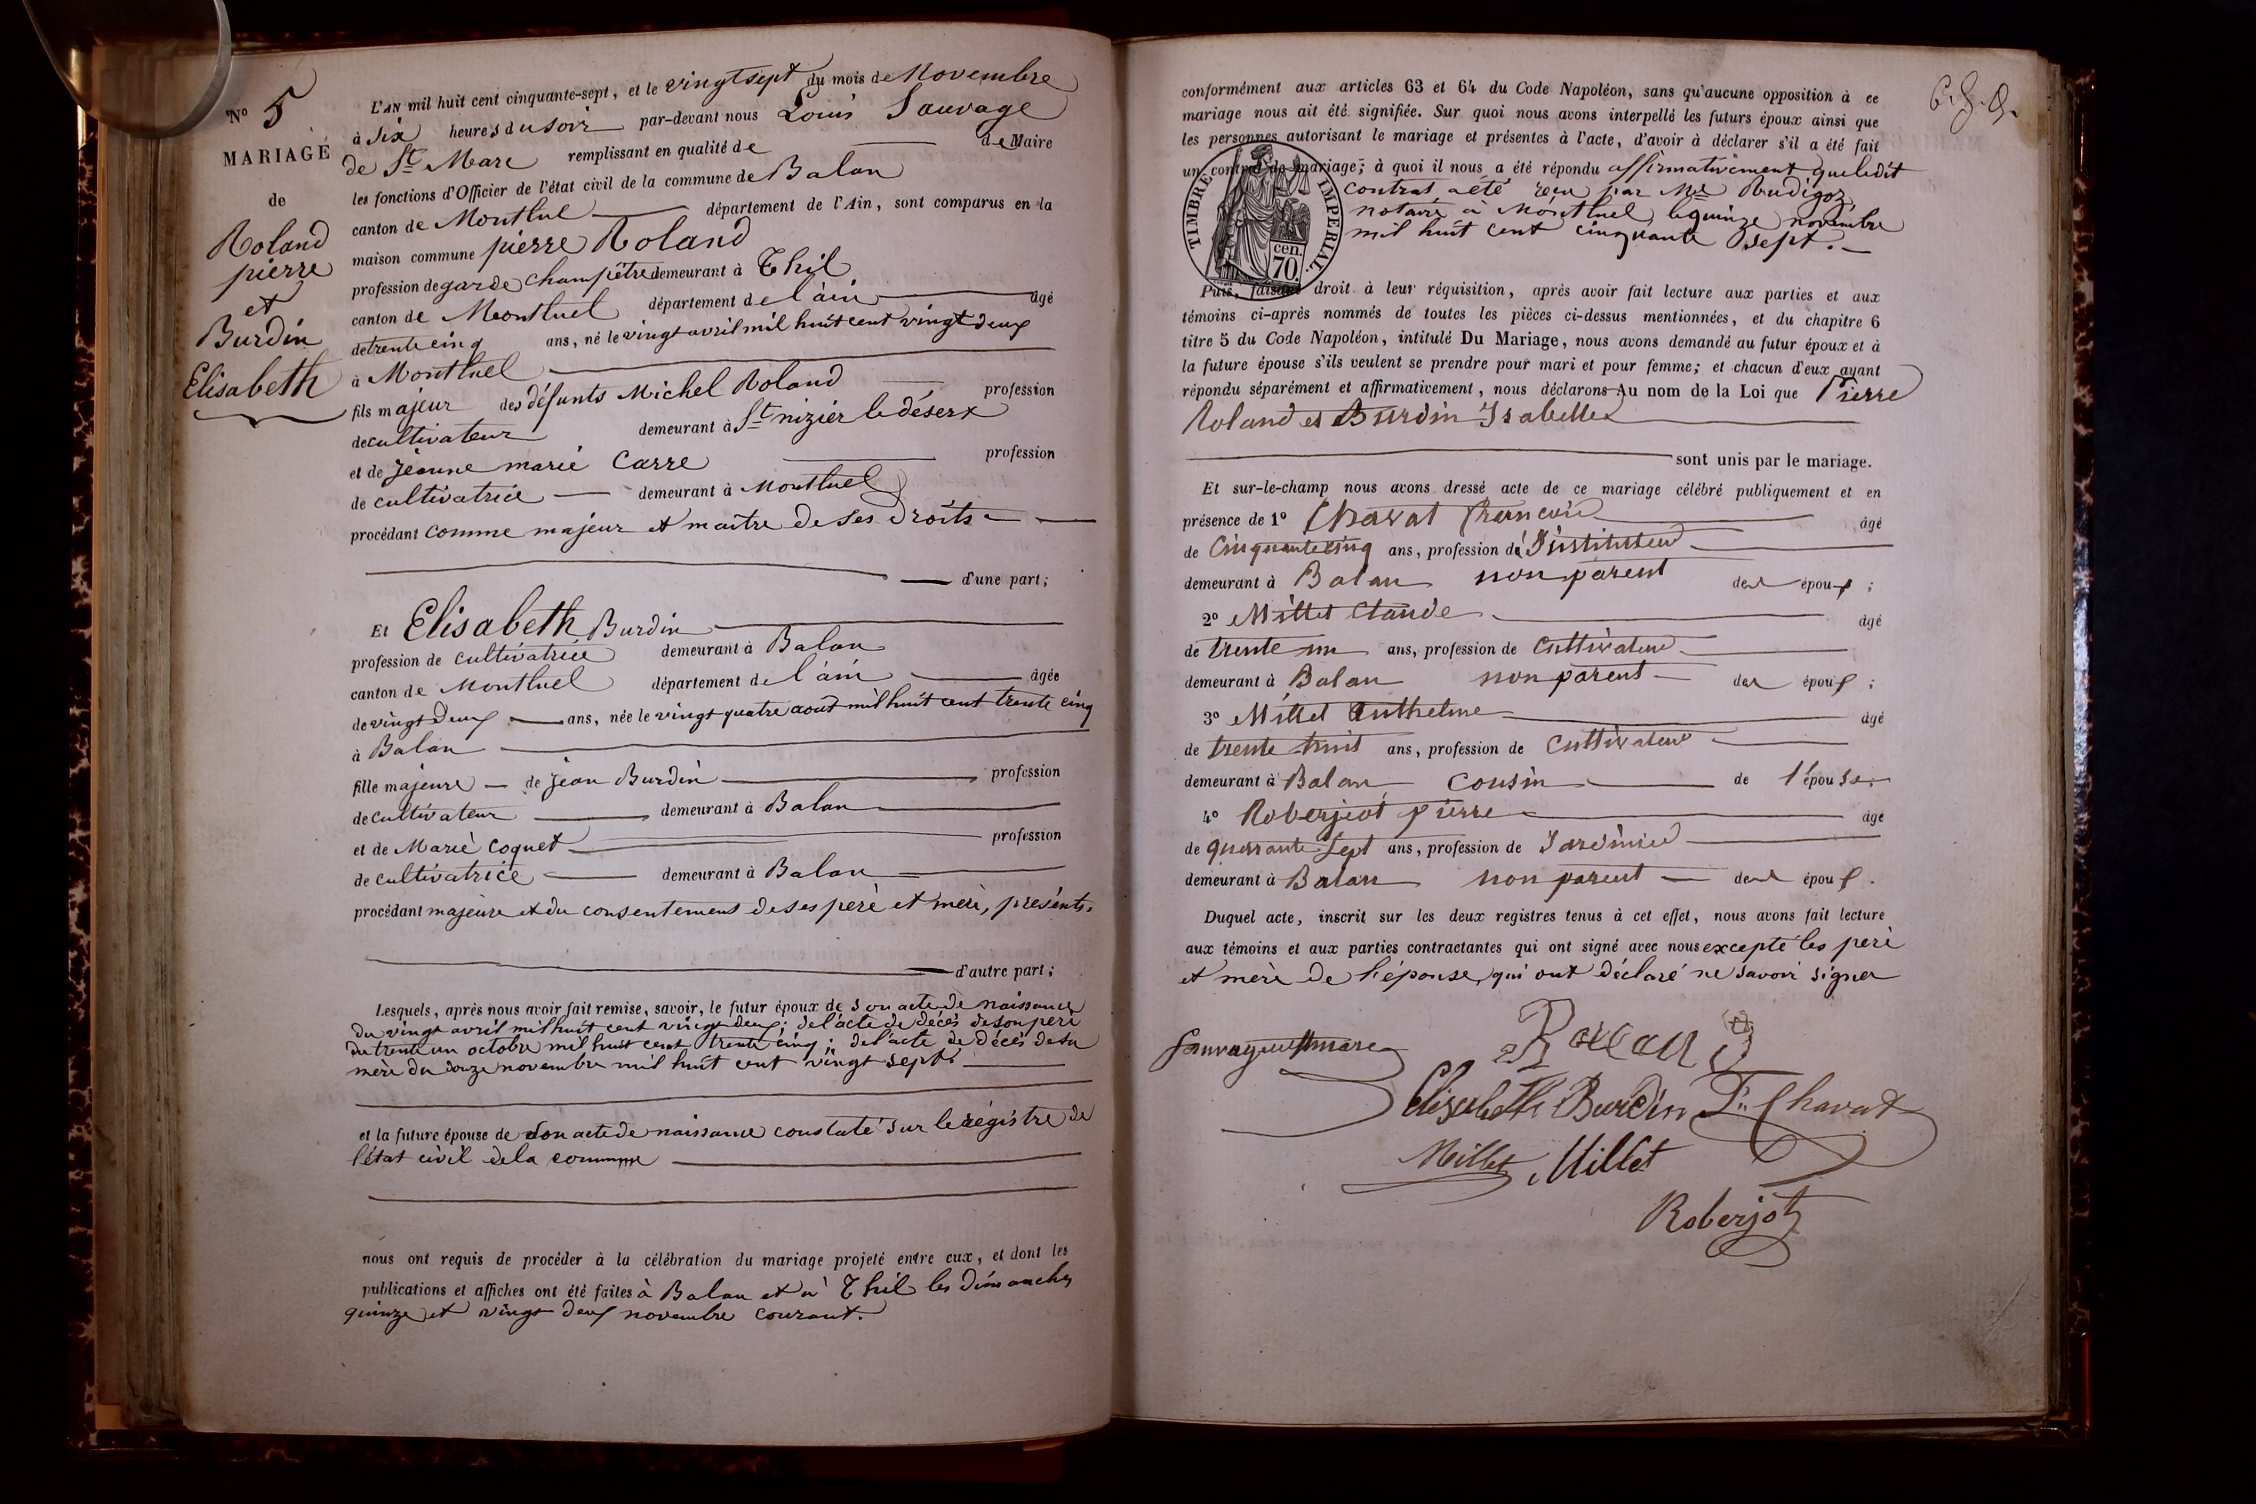 N° 5
MARIAGE
de
Roland
pierre
et
Burdin
Elisabeth
L'AN mil huit cent cinquante-sept, et le vingt sept du mois de Novembre
à Six heures du soir par-devant nous Louis Sauvage
de St Marc remplissant en qualité de de Maire
les fonctions d'Officier de l'état civil de la commune de Balan
canton de Montluel département de l'Ain, sont comparus en la
maison commune pierre Roland
profession de garde champêtre demeurant à Thil
canton de Montluel département de l'ain âgé
de trente cinq ans, né le vingt avril mil huit cent vingt deux
à Montluel
fils majeur des défunts Michel Roland profession
de cultivateur demeurant à St nizier le désert
et de Jeanne marie Carre profession
de cultivatrice demeurant à Montluel
procédant comme majeur et maitre de ses droits
d'une part;
Et Elisabeth Burdin
profession de cultivatrice demeurant à Balan
canton de Montluel département de l'ain âgée
de vingt deux ans, née le vingt quatre aout mil huit cent trente cinq
à Balan
fille majeure de Jean Burdin profession
de cultivateur demeurant à Balan
et de Marie Coquet profession
de cultivatrice demeurant à Balan
procédant majeure et du consentement de ses père et mère, présents.
d'autre part;
Lesquels, après nous avoir fait remise, savoir, le futur époux de son acte de naissance
du vingt avril mil huit cent vingt deux; de l'acte de décés de son père
du trente un octobre mil huit cent trente cinq; de l'acte de décés de sa
mère du douze novembre mil huit cent vingt sept.
et la future épouse de son acte de naissance constaté sur le régistre de
l'état civil de la commune
nous ont requis de procéder à la célébration du mariage projeté entre eux, et dont les
publications et affiches ont été faites à Balan et à Thil les dimanches
quinze et vingt deux novembre courant.
conformément aux articles 63 et 64 du Code Napoléon, sans qu'aucune opposition à ce
mariage nous ait été signifiée. Sur quoi nous avons interpellé les futurs époux ainsi que
les personnes autorisant le mariage et présentes à l'acte, d'avoir à déclarer s'il a été fait
un contrat de mariage; à quoi il nous a été répondu affirmativement que ledit
contrat a été reçu par Me Rudigoz
notaire à Montluel le quinze novembre
mil huit cent cinquante sept.
TIMBRE IMPERIAL.
cen.
70.
Puis, faisant droit à leur réquisition, après avoir fait lecture aux parties et aux
témoins ci-après nommés de toutes les pièces ci-dessus mentionnées, et du chapitre 6
titre 5 du Code Napoléon, intitulé Du Mariage, nous avons demandé au futur époux et à
la future épouse s'ils veulent se prendre pour mari et pour femme; et chacun d'eux ayant
répondu séparément et affirmativement, nous déclarons Au nom de la Loi que Pierre
Roland et Burdin Isabelle
sont unis par le mariage.
Et sur-le-champ nous avons dressé acte de ce mariage célébré publiquement et en
présence de 1° Chavat francois âgé
de Cinquante cinq ans, profession de Instituteur
demeurant à Balan non parent des époux;
2° Millet Claude âgé
de trente un ans, profession de Cultivateur
demeurant à Balan non parent des époux;
3° Millet Anthelme âgé
de trente huit ans, profession de Cultivateur
demeurant à Balan cousin de l'épouse
4° Roberjiot pierre âgé
de quarante Sept ans, profession de Jardinier
demeurant à Balan non parent des époux.
Duquel acte, inscrit sur les deux registres tenus à cet effet, nous avons fait lecture
aux témoins et aux parties contractantes qui ont signé avec nous excepté les père
et mère de l'épouse, qui ont déclaré ne savoir signer
Rolland
Elisabeth Burdin Fs Chavat
Millet Millet
Roberjot